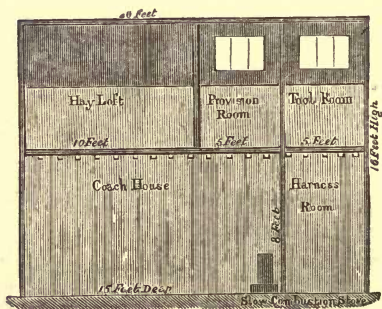 20 Feet
Hay Loft
Provision
Room
Tool Room
10 Feet
5 Feet
5 Feet
16 Feet High
Coach House
Harness
Room
8 Feet
15 Feet Deep
Slow Combustion Stove